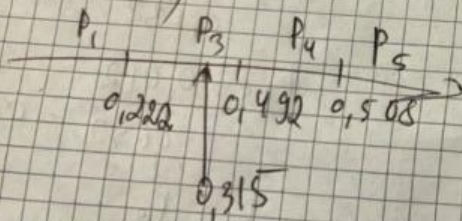 P₁ P₃ P₄ P₅
0,222 0,492 0,508
0,315